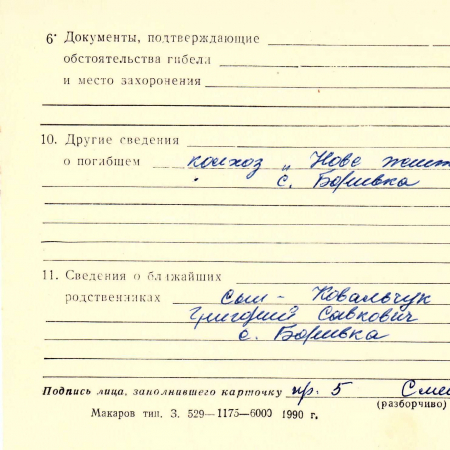 6• Документы, подтверждающие
обстоятельства гибели
и место захоронения
10. Другие сведения
о погибшем колхоз „Нове
с. Боривка
11. Сведения о ближайших
родственниках сын - Ковальчук
Григорий Савкович
с. Боривка
Подпись лица, заполнившего карточку пр. 5
(разборчиво)
Макаров тип. З. 529—1175—6000 1990 г.